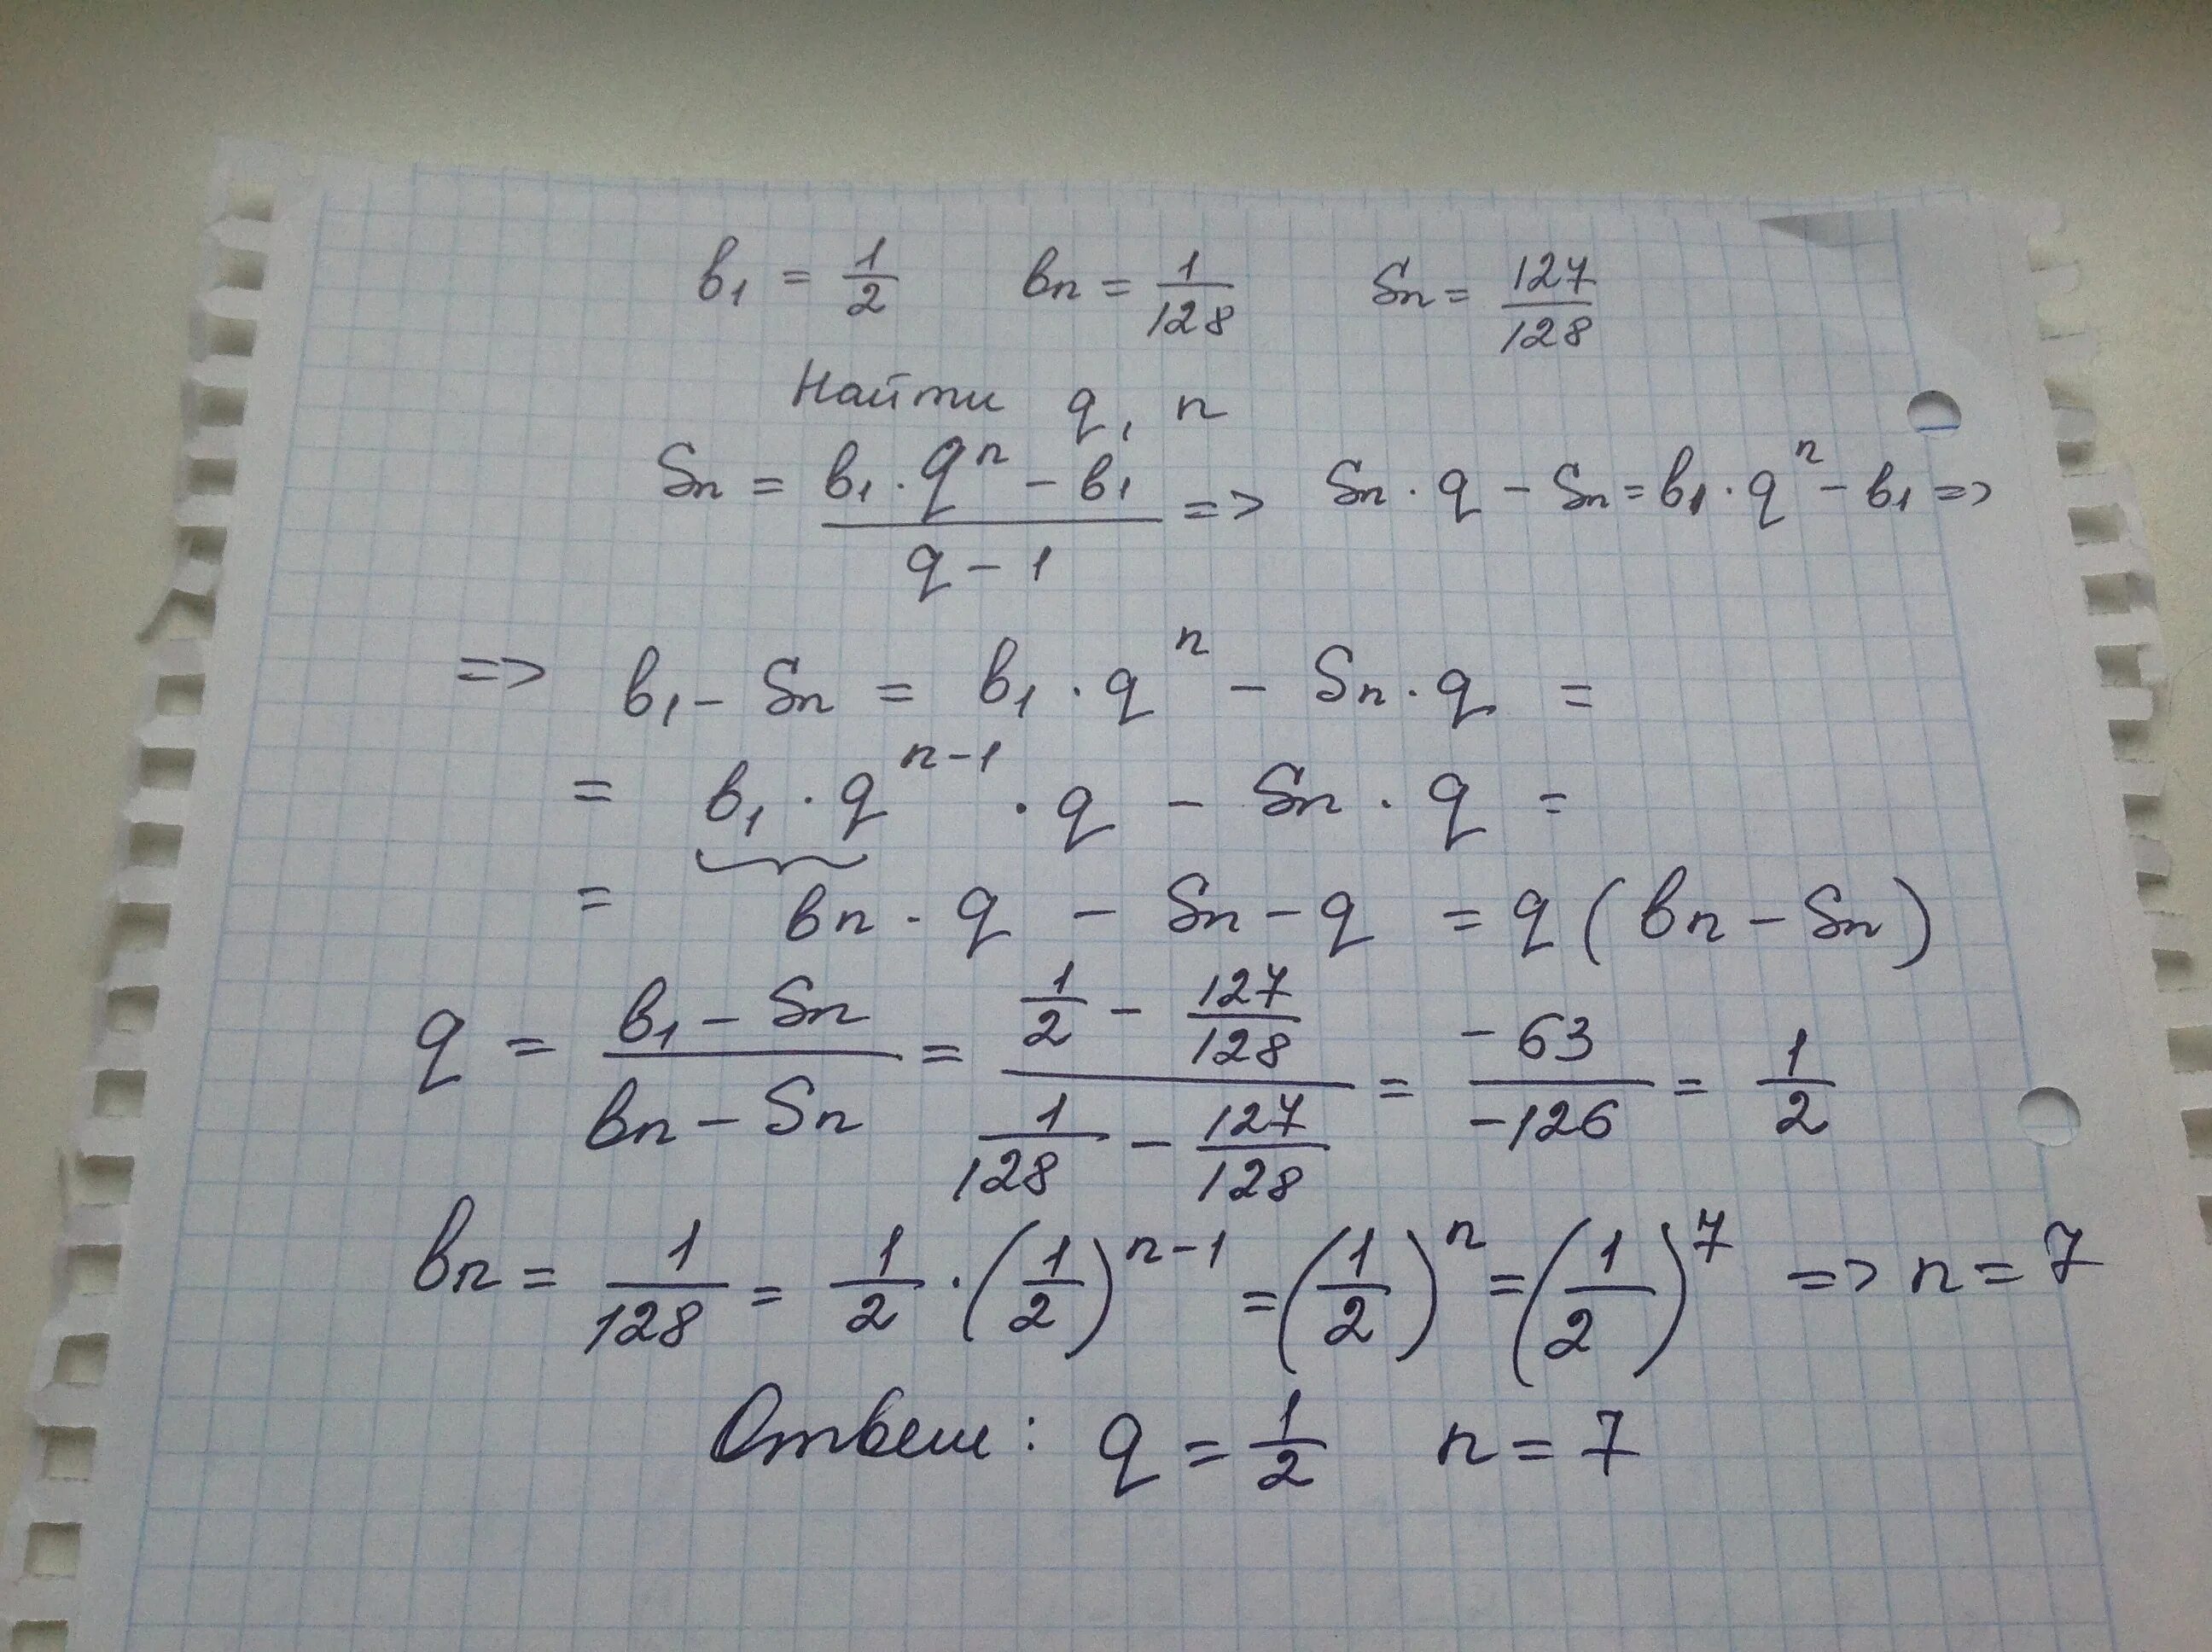 в₁ = 1/2 вn = 1/128 Sn = 127/128
Найти q, n
Sn = (в₁ · qⁿ − в₁)/(q − 1) => Sn · q − Sn = в₁ · qⁿ − в₁ =>
=> в₁ − Sn = в₁ · qⁿ − Sn · q =
= в₁ · qⁿ⁻¹ · q − Sn · q =
= вn · q − Sn − q = q (вn − Sn)
q = (в₁ − Sn)/(вn − Sn) = (1/2 − 127/128)/(1/128 − 127/128) = −63/−126 = 1/2
вn = 1/128 = 1/2 · (1/2)ⁿ⁻¹ = (1/2)ⁿ = (1/2)⁷ => n = 7
Ответ: q = 1/2 n = 7